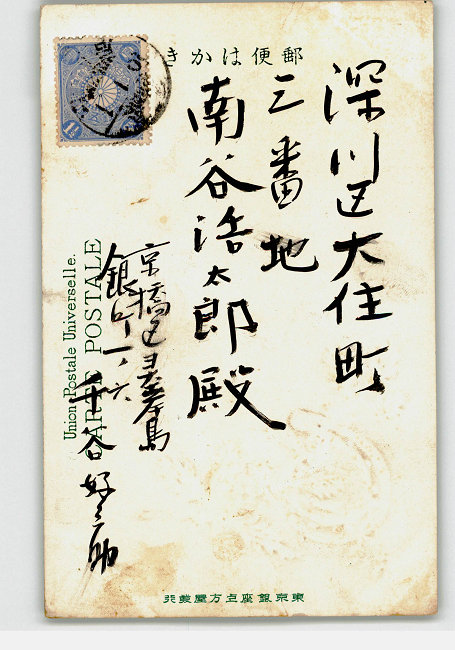 郵便はかき
深川区大住町
三番地
南谷浩太郎殿
京橋区霊岸島
銀町一ノ六
千谷好之助
Union Postale Universelle.
CARTE POSTALE
1½
東京銀座上方屋發行